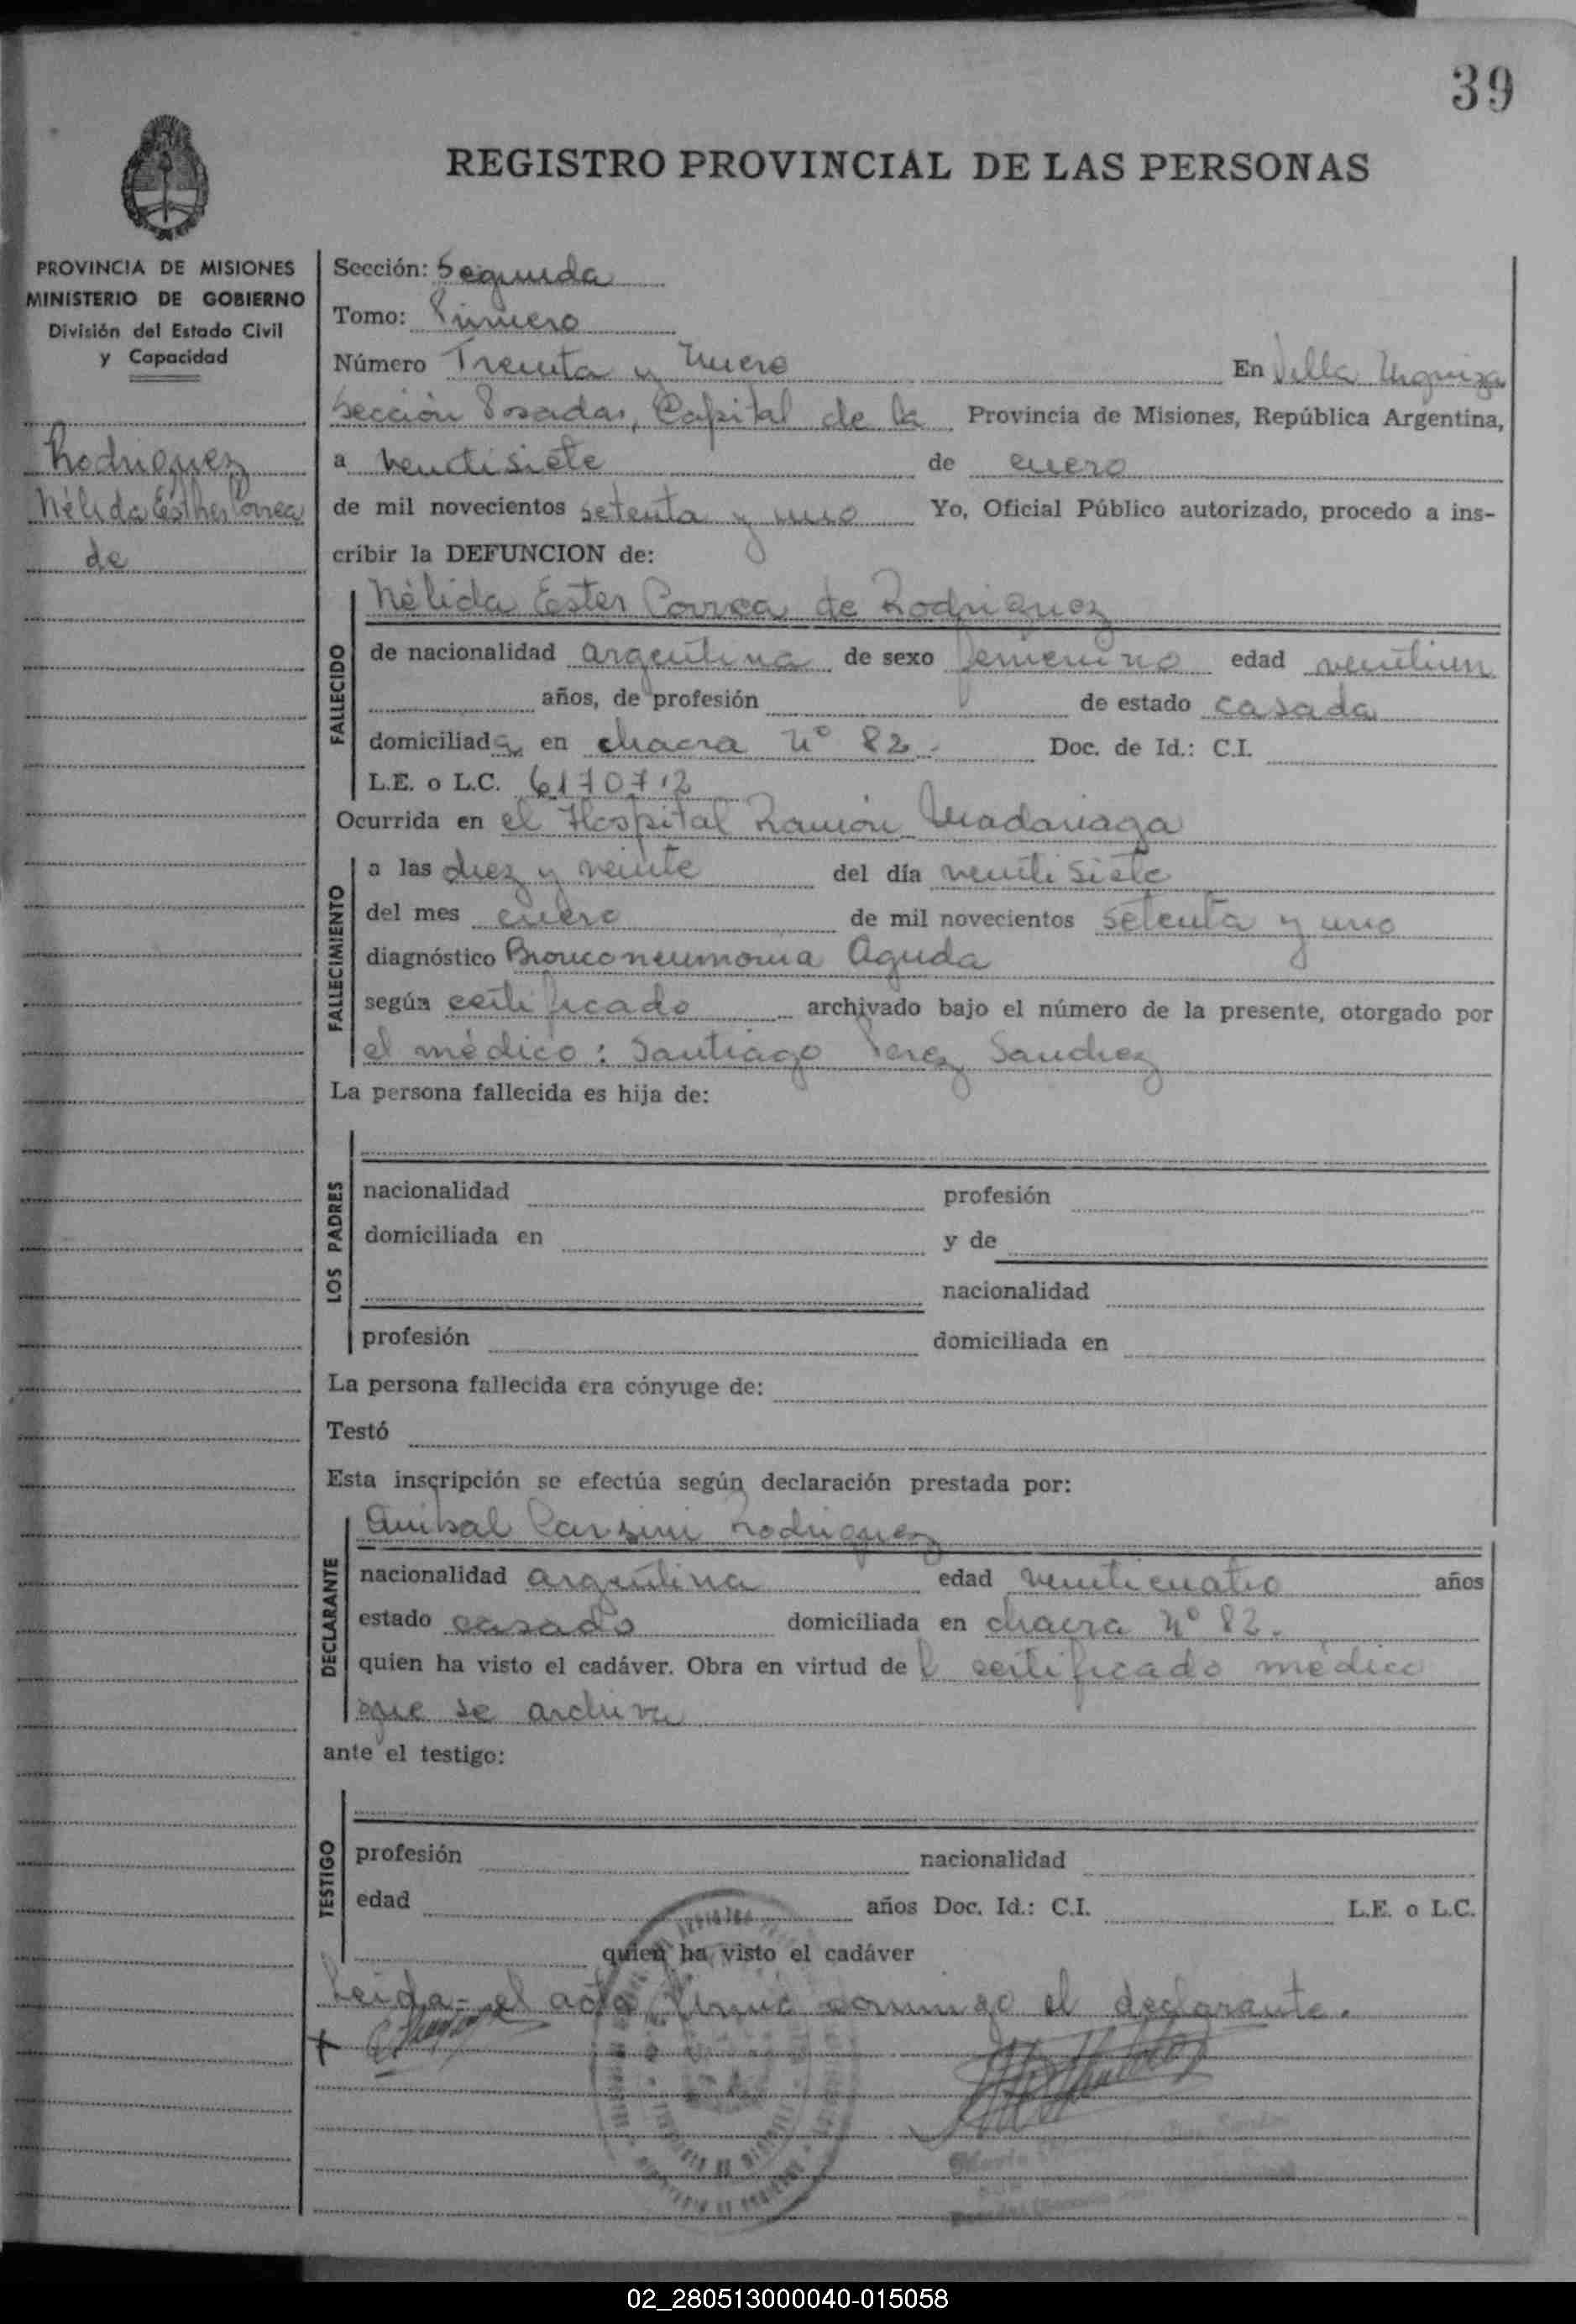 39
REGISTRO PROVINCIAL DE LAS PERSONAS
PROVINCIA DE MISIONES
MINISTERIO DE GOBIERNO
División del Estado Civil
y Capacidad
Rodriguez
Nélida Esther Correa
de
Sección: Segunda
Tomo: Primero
Número Treinta y Nueve En Villa Urquiza
Sección Posadas, Capital de la Provincia de Misiones, República Argentina,
a ventisiete de enero
de mil novecientos setenta y uno Yo, Oficial Público autorizado, procedo a ins-
cribir la DEFUNCION de:
Nélida Ester Correa de Rodriguez
FALLECIDO
de nacionalidad argentina de sexo femenino edad ventiun
años, de profesión de estado casada
domiciliada en chacra Nº 82.- Doc. de Id.: C.I.
L.E. o L.C. 6170712
Ocurrida en el Hospital Ramón Madariaga
FALLECIMIENTO
a las diez y veinte del día ventisiete
del mes enero de mil novecientos setenta y uno
diagnóstico Bronconeumonia Aguda
según certificado archivado bajo el número de la presente, otorgado por
el médico: Santiago Perez Sanchez
La persona fallecida es hija de:
LOS PADRES
nacionalidad profesión
domiciliada en y de
nacionalidad
profesión domiciliada en
La persona fallecida era cónyuge de:
Testó
Esta inscripción se efectúa según declaración prestada por:
DECLARANTE
Anibal Rodriguez
nacionalidad argentina edad venticuatro años
estado casado domiciliada en chacra Nº 82.
quien ha visto el cadáver. Obra en virtud del certificado médico
que se archiva
ante el testigo:
TESTIGO
profesión nacionalidad
edad años Doc. Id.: C.I. L.E. o L.C.
quien ha visto el cadáver
Leida el acta firmó conmigo el declarante.
02_280513000040-015058